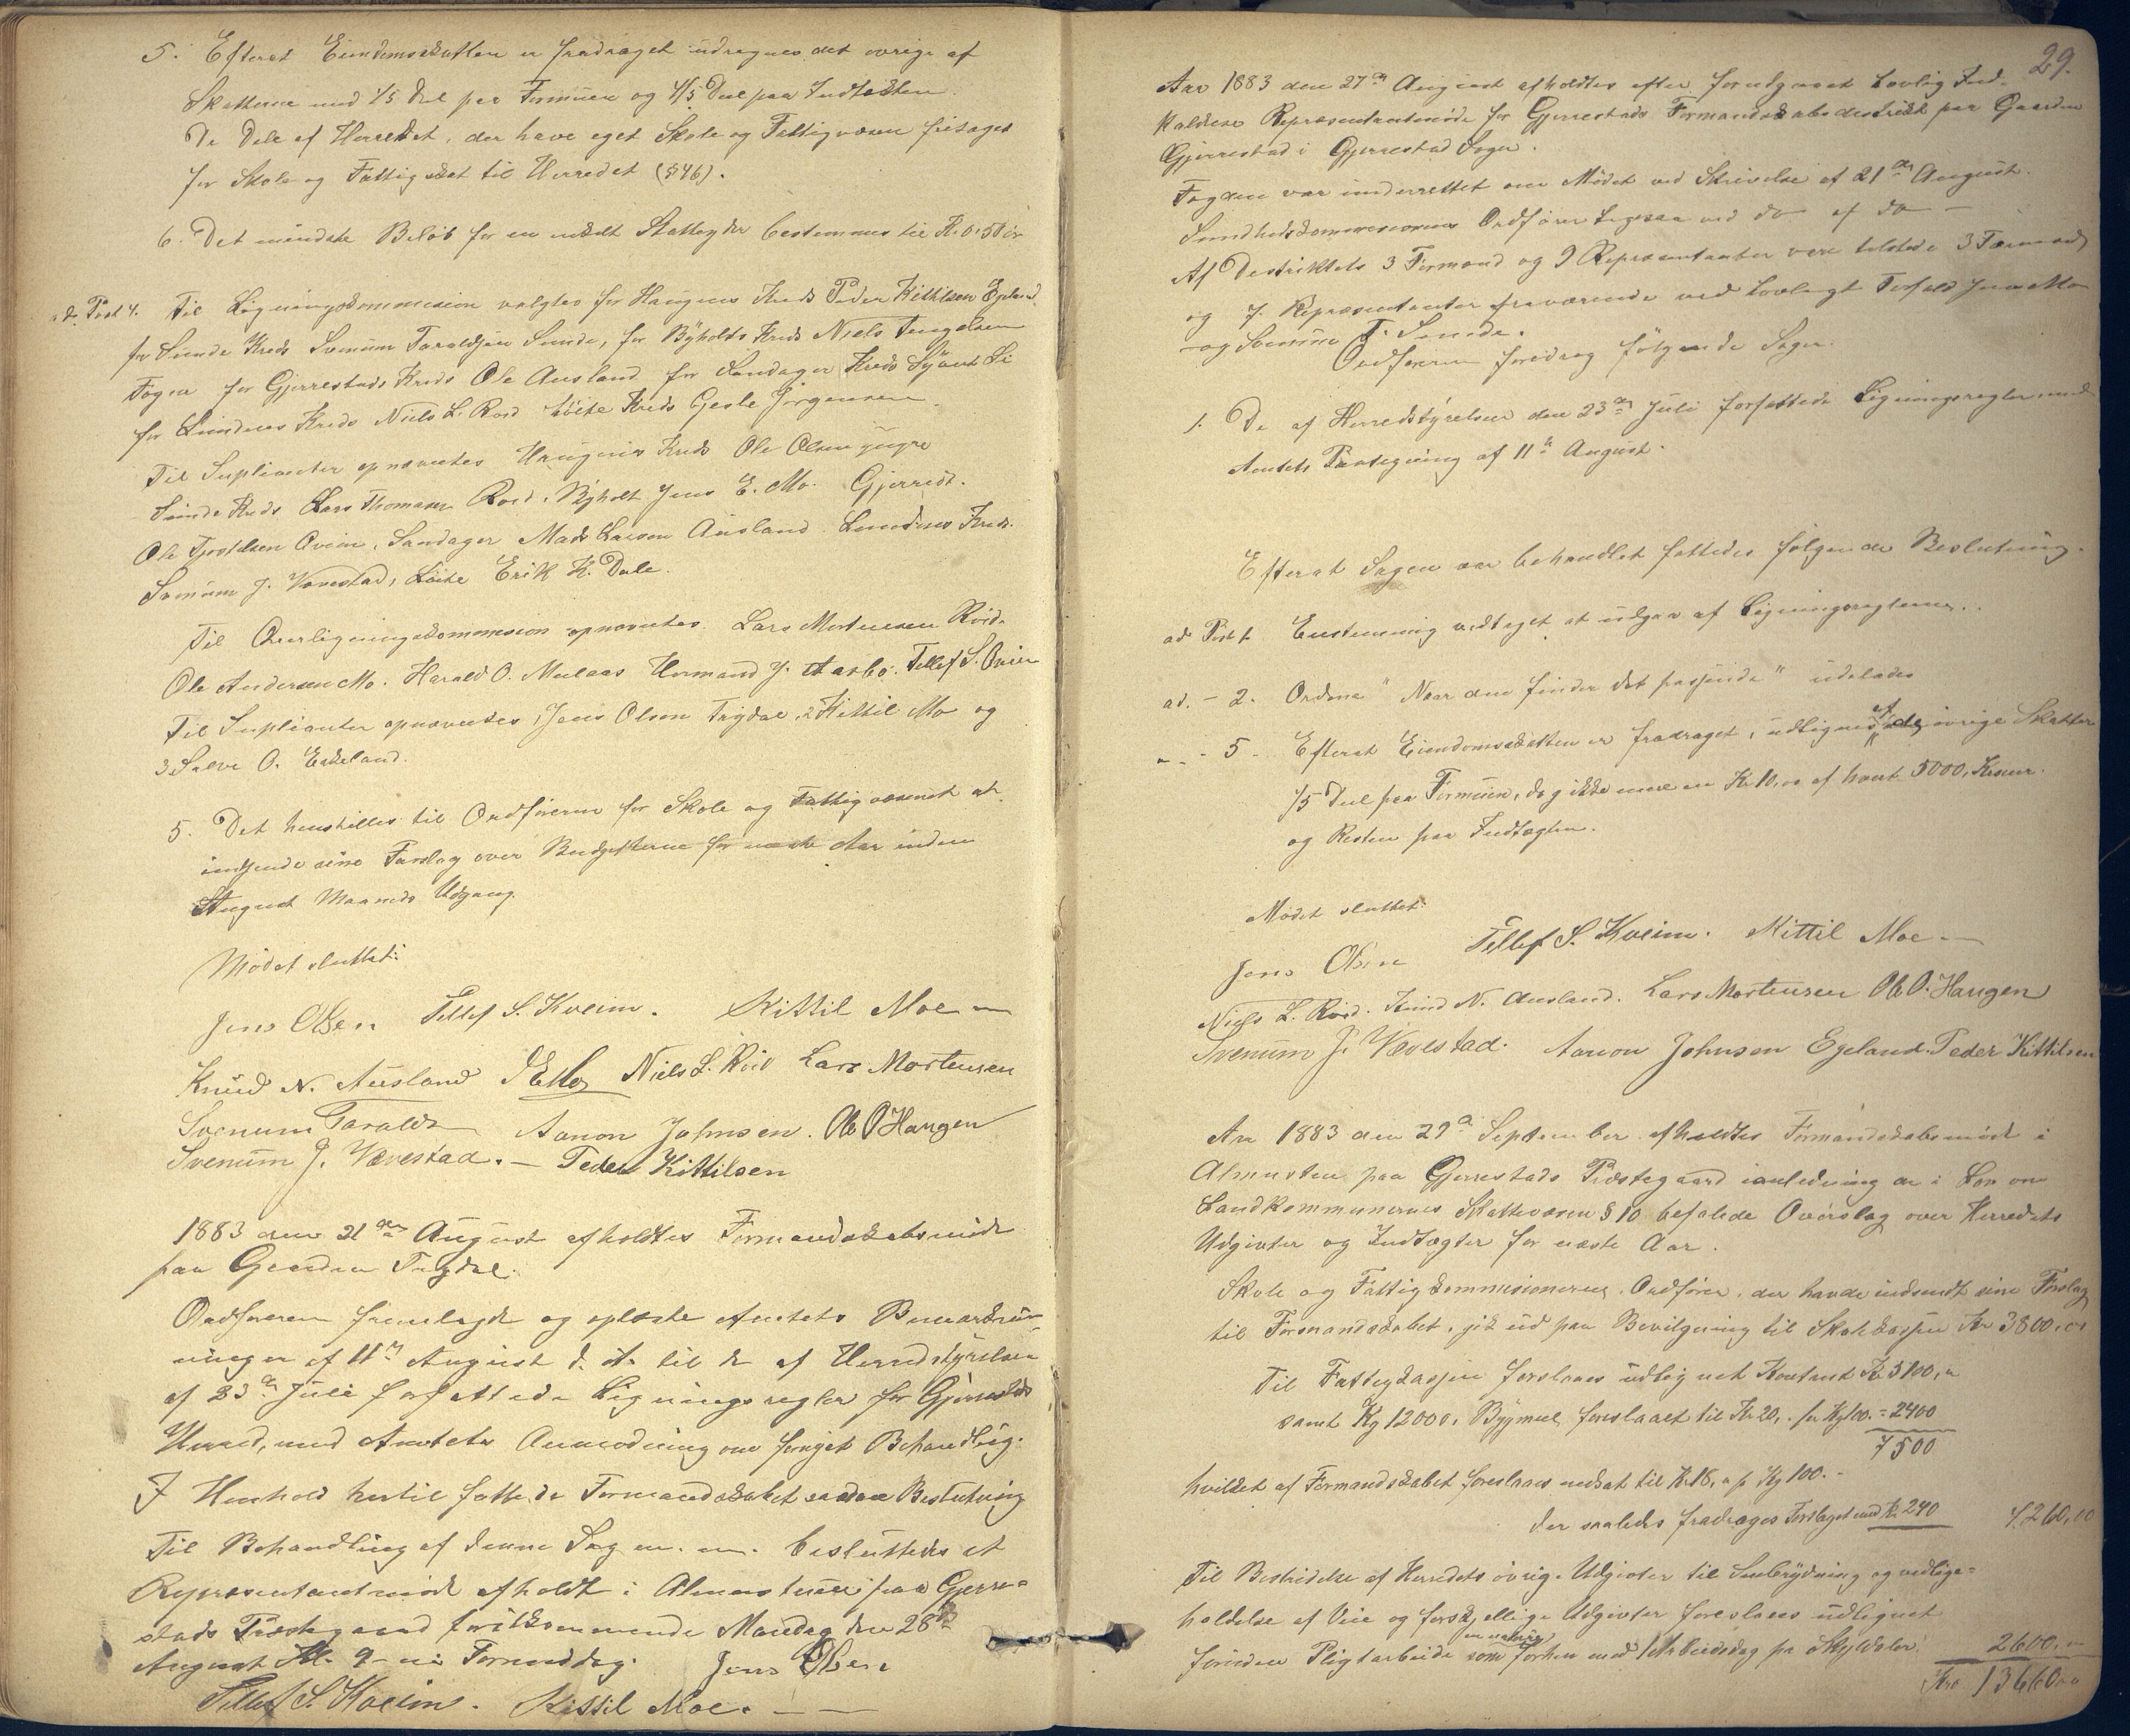 5. Efterat Eiendomsskatten er fradraget udregnes det øvrige af
Skatterne med 1/5 Del paa Formuen og 4/5 Del paa Indtægten.
De Dele af Herredet, der have eget Skole og Fattigvæsen fritages
for Skole og Fattigskat til Herredet (§ 46).
6. Det mindste Beløb for en enkelt Skatteyder bestemmes til Kr. 0.50 ør
ad. Post 4. Til Ligningskommission valgtes for Haugens Kreds Peder Kittilsen Egeland
for Sunde Kreds Svenum Taraldsen Sunde, for Byholts Kreds Niels
for Gjerrestads Kreds Ole Ausland for Sandager Kreds
for Lundenes Kreds Niels L. Roid Løite Kreds Gjeste Jørgensen.
Til Suplianter opnævntes Haugens Kreds Ole Olsen yngre
Sunde Kreds Lars Thomasen Roid, Byholt Jens E. Mo. Gjerrest.
Ole Tjostolsen Qveim, Sandager Mads Larsen Ausland Lundenes Kreds.
Svenum J. Vævestad, Løite Erik K. Dale.
Til Overligningskommission opnævntes Lars Mortensen Roid.
Ole Andersen Mo. Harald O. Mulaas Hermand J. Aasbø. Tellef S. Qveim
Til Suplianter opnævntes 1 Jens Olsen Trydal, 2 Kittil Mo og
3 Salve O. Eskeland.
5. Det henstilles til Ordførerne for Skole og Fattigvæsenet at
indsende sine Forslag over Budgetterne for næste Aar inden
August Maaneds Udgang.
Mødet sluttet:
Jens Olsen Tellef S. Kveim. Kittil Moe
Knud N. Ausland JEMo Niels L. Roid Lars Mortensen
Svenum Taralds Aanon Johnsen. Ole O Haugen
Svenum J. Vævestad. — Peder Kittilsen
1883 den 21de August afholdtes Formandskabsmøde
paa Gaarden Trydal.
Ordføreren fremlagde og oplæste Amtets Bemærk-
ninger af 11te August d. A. til de af Herredstyrelsen
af 23de Juli forfattede Ligningsregler for Gjerrestads
Herred, med Amtets Anmodning om fornyet Behandling.
I Henhold hertil fattede Formandskabet saadan Beslutning
Til Behandling af denne Sag m. m. besluttedes at
Repræsentantmøde afholdt i Almustuen paa Gjerre-
stads Præstegaard førstkommende Mandag den 28de
August Kl. 9 - ni Formiddag. Jens Olsen
Tellef S. Kveim. Kittil Moe. — —
29.
Aar 1883 den 27de August afholdtes efter forudgaaet Lovlig Ind-
kaldelse Repræsentantmøde for Gjerrestads Formandskabsdistrikt paa Gaarden
Gjerrestad i Gjerrestad Sogn.
Fogden var underrettet om Mødet ved Skrivelse af 21de August.
Sundhedskommissionens Ordfører Ligesaa ved do af do —
Af Destriktets 3 Formænd og 9 Repræsentanter vare tilstede 3 Formænd
og 7 Repræsentanter fraværende ved Lovligt Forfald Jens Mo
og Svenum T. Sunde.
Ordføreren foredrog følgende Sager.
1. De af Herredstyrelsen den 23de Juli forfattede Ligningsregler med
Amtets Paategning af 11te August.
Efterat Sagen var behandlet fattedes følgende Beslutning.
ad Post 1. Enstemmig vedtaget at udgaa af Ligningsreglerne..
ad. - 2. Ordene "Naar den finder det passende" udelades
" - 5 - Efterat Eiendomsskatten er fradraget, udlignes af de øvrige Skatter
1/5 Del paa Formuen, dog ikke mere en Kr. 10,00 af hvert 5000, Kroner.
og Resten paa Indtægten.
Mødet sluttet:
Jens Olsen Tellef S. Kveim. Kittil Moe —
Niels L. Roid. Knud N. Ausland. Lars Mortensen Ole O. Haugen
Svenum J. Vævestad. Aanon Johnsen Egeland. Peder Kittilsen
Aar 1883 den 29de September afholdtes Formandskabsmøde i
Almustuen paa Gjerrestads Præstegaard i anledning de i Lov om
Landkommunernes Skattevæsen § 10 befalede Overslag over Herredets
Udgivter og Indtægter for næste Aar.
Skole og Fattigkommisionernes Ordfører, der havde indsendt sine Forslag
til Formandskabet, gik ud paa Bevilgning til Skolekassen Kr 3800,00
Til Fattigkassen foreslaaes udlignet Kontant Kr. 5100,00
samt Kg 12000. Bygmeel foreslaaet til Kr. 20,. pr Kg 100. = 2400
7500
hvilket af Formandskabet foreslaaes nedsat til Kr. 18, " pr Kg 100. -
der saaledes fradrages Forslaget med Kr. 240 7.260,00
Til Bestridelse af Herredets øvrige Udgivter til Snebrydning og vedlige-
holdelse af Veie og forskjellige Udgivter foreslaaes udlignet
foruden Pligtarbeide som forhen med 1 Arbeidsdag pr Skyldaler. 2600,00
Kro 13660,00